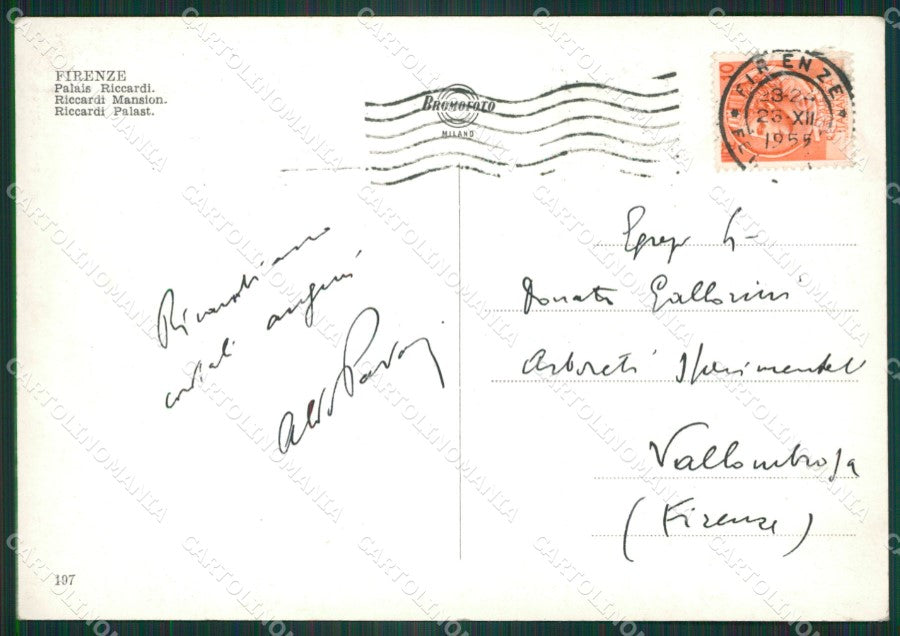 FIRENZE
Palais Riccardi.
Riccardi Mansion.
Riccardi Palast.
BROMOFOTO
MILANO
10
FIRENZE
XII
1955
Ricambiamo
cordiali auguri
Aldo Pavari
Donato Gallorini
Arboreti Sperimentali
Vallombrosa
(Firenze)
197
CARTOLINOMANIA